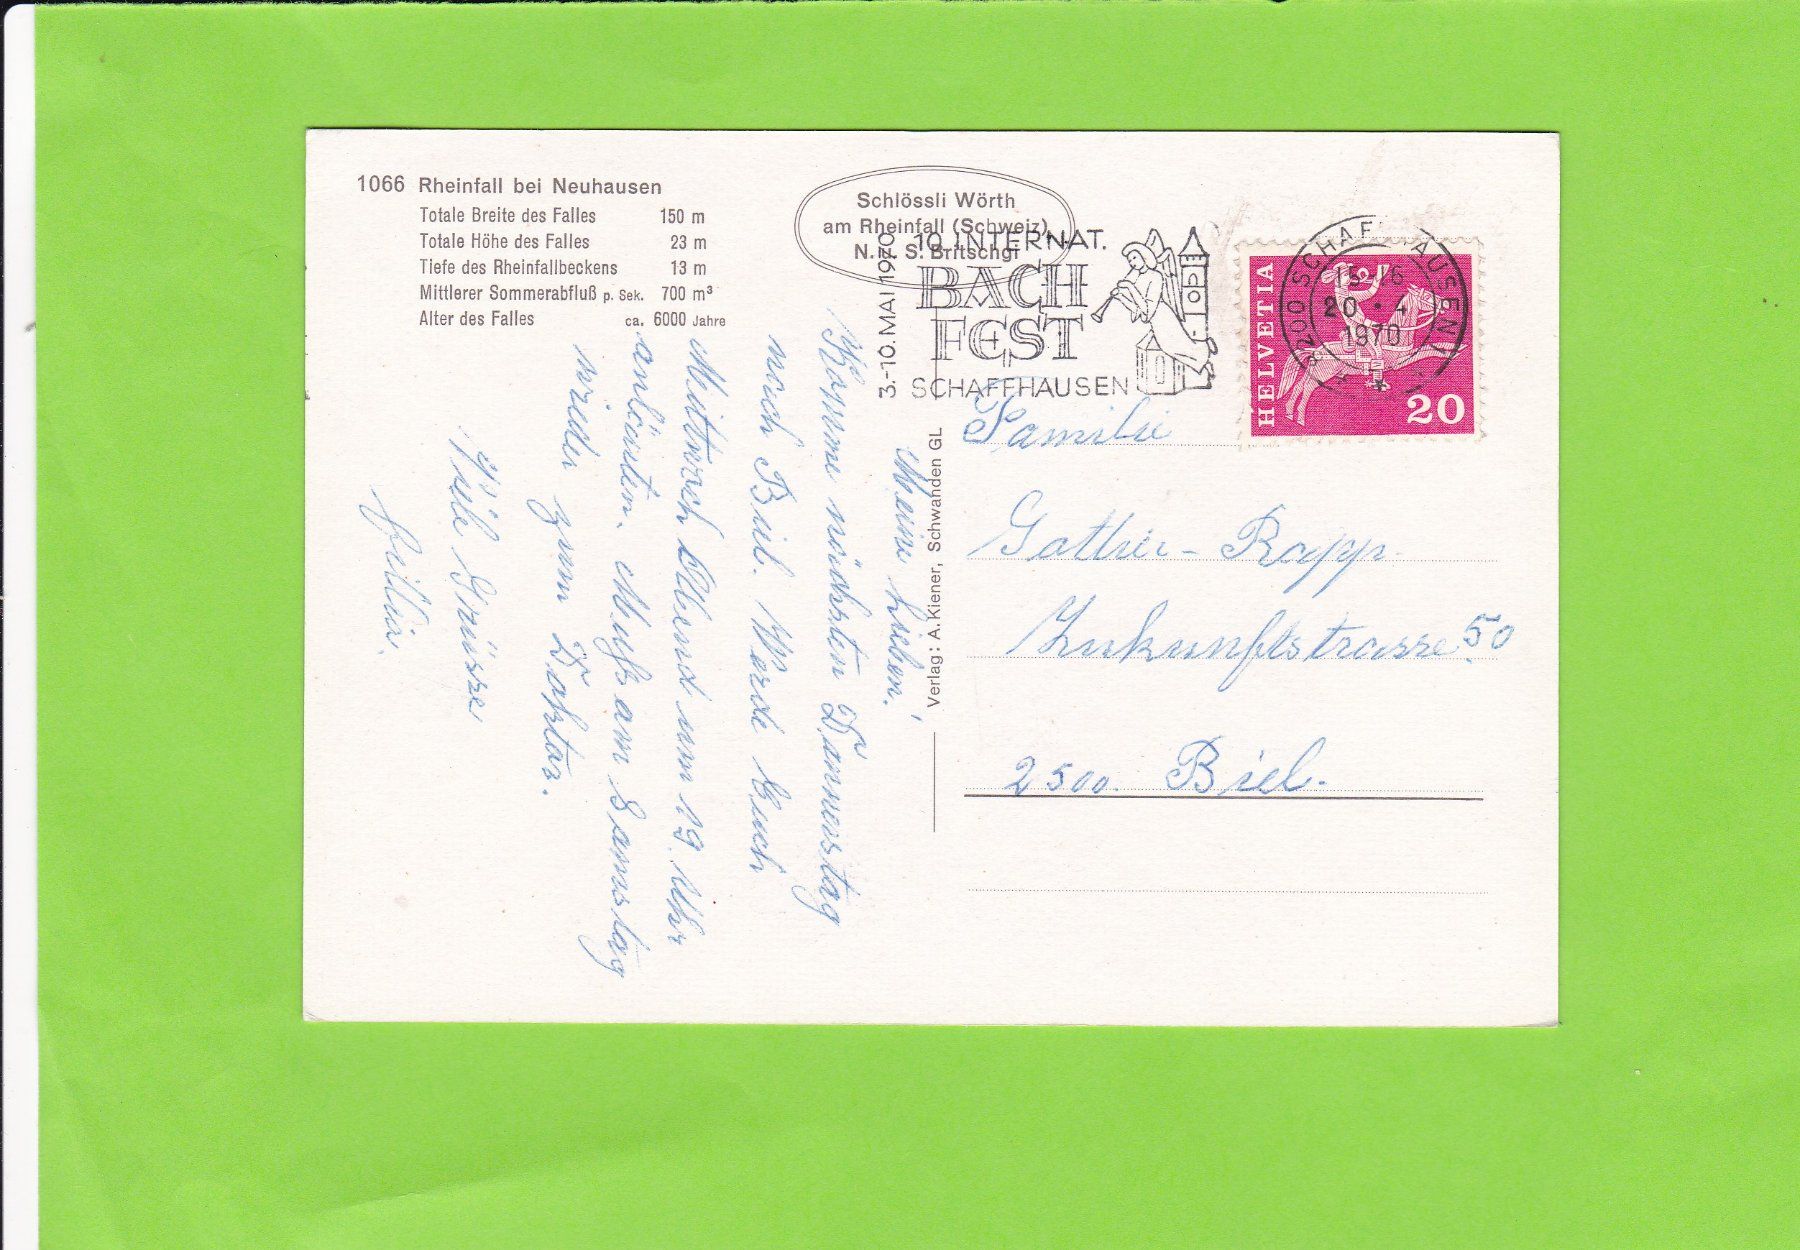 1066 Rheinfall bei Neuhausen
Totale Breite des Falles 150 m
Totale Höhe des Falles 23 m
Tiefe des Rheinfallbeckens 13 m
Mittlerer Sommerabfluß p. Sek. 700 m³
Alter des Falles ca. 6000 Jahre
Schlössli Wörth
am Rheinfall (Schweiz)
S. Britschgi
3.-10. MAI 1970
10. INTERNAT.
BACH
FEST
SCHAFFHAUSEN
8200 SCHAFFHAUSEN 1
15-16
20.-4
1970
HELVETIA
20
Verlag: A. Kiener, Schwanden GL
Meine Lieben!
Komme nächsten Donnerstag
nach Biel. Werde Euch
Mittwoch Abend um 19 Uhr
anläuten. Muss am Samstag
wieder zum Doktor.
Viele Grüsse
Familie
Rapp
Zukunftstrasse 50
2500 Biel.